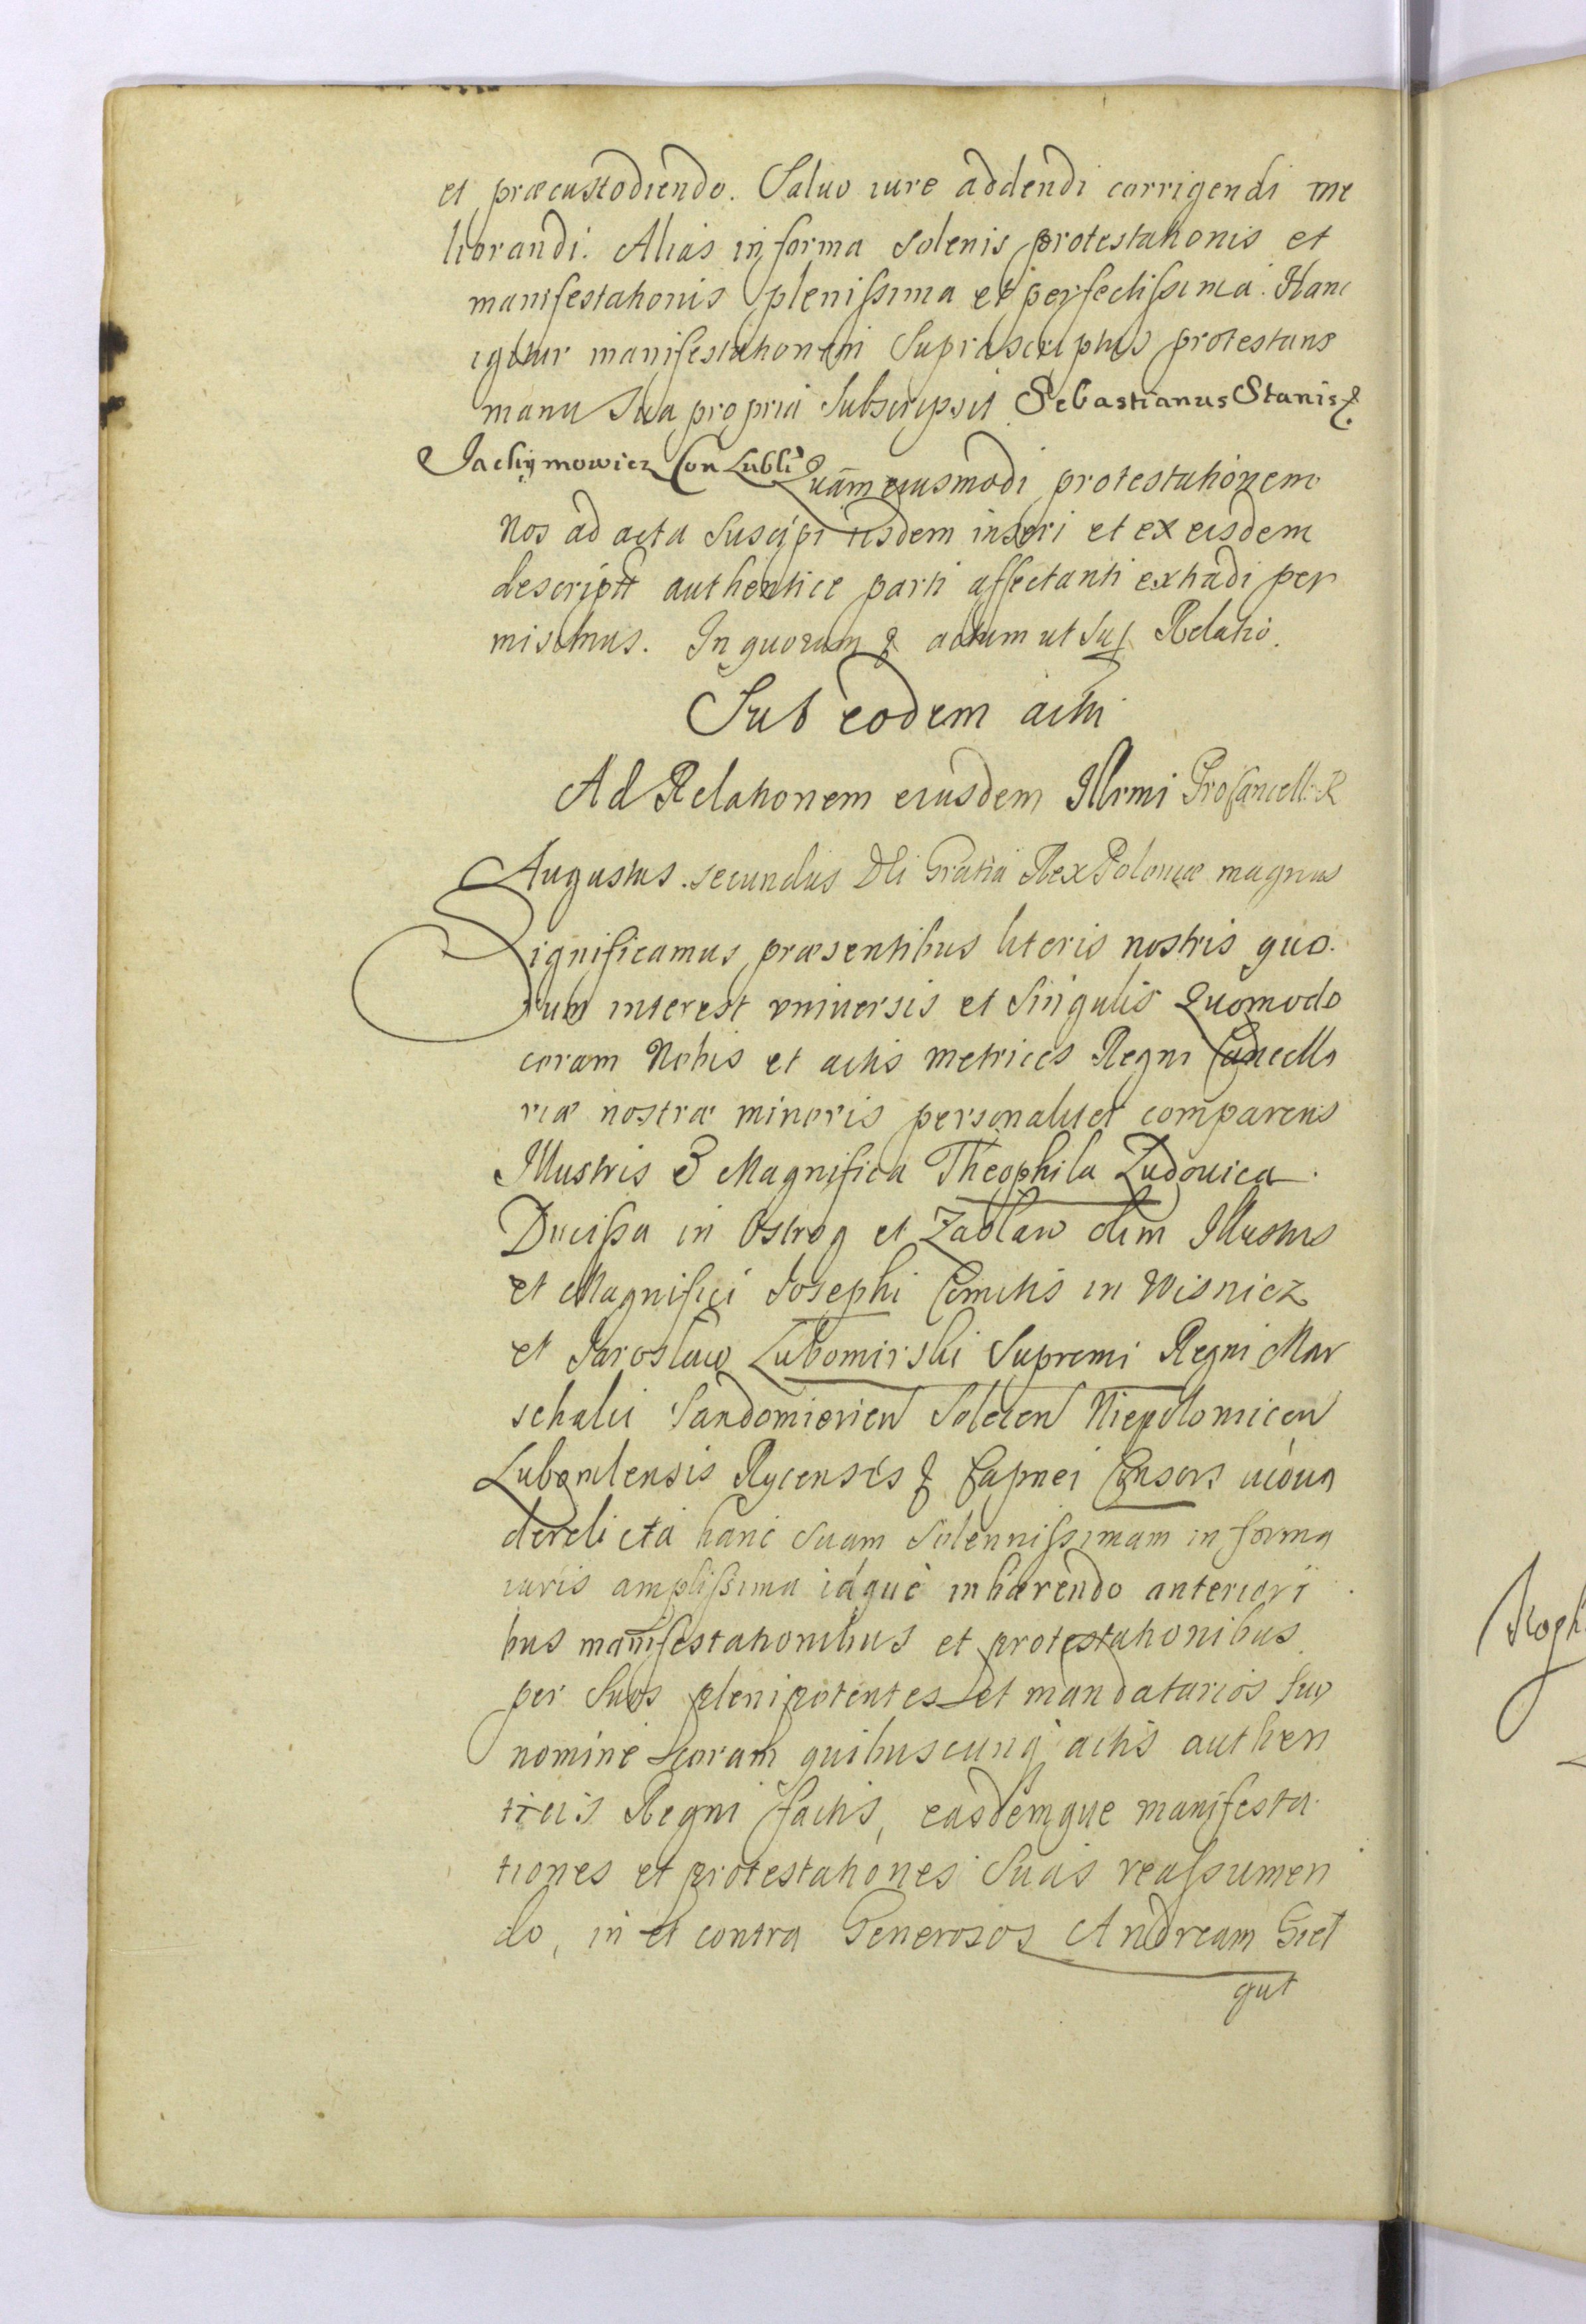 et præcustodiendo. Saluo iure addendi corrigendi me
liorandi. Alias in forma solenis protestationis et
manifestationis plenissima et perfectissima. Hanc
igitur manifestationem Suprascriptus protestans
manu Sua propria Subscripsit Sebastianus Stanis
Jachymowicz Con Lubli Quam eiusmodi protestationem
Nos ad acta Suscipi iisdem inseri et ex eisdem
descriptt authentice parti affectanti extradi per
misimus. In quorum & actum ut Sup Relatio.
Sub eodem actu
Ad Relationem eiusdem Illrmi ProCancell: R
Augustus secundus Dei Gratia Rex Poloniæ magnus
Significamus præsentibus literis nostris quo.
rum interest vniuersis et Singulis Quomodo
coram Nobis et actis metrices Regni Cancella
riæ nostræ minoris personaliter comparens
Illustris & Magnifica Theophila Ludouica
Ducissa in Ostrog et Zaslaw olim Illustris
et Magnifici Josephi Comitis in Wisnicz
et Jaroslaw Lubomirski Supremi Regni Mar
schalci Sandomirien Solecen Niepolomicen
Lubomlensis Rycensis & Capnei Consors vidua
derelicta hanc Suam Solennissimam in forma
iuris amplissima idque inhærendo anteriori
bus manifestationibus et protestationibus
per Suos plenipotentes et mandatarios Suo
nomine coram quibuscunq actis authen
ticis Regni factis, easdemque manifesta.
tiones et protestationes Suas reassumen
do, in et contra Generosos Andream Giel
gut